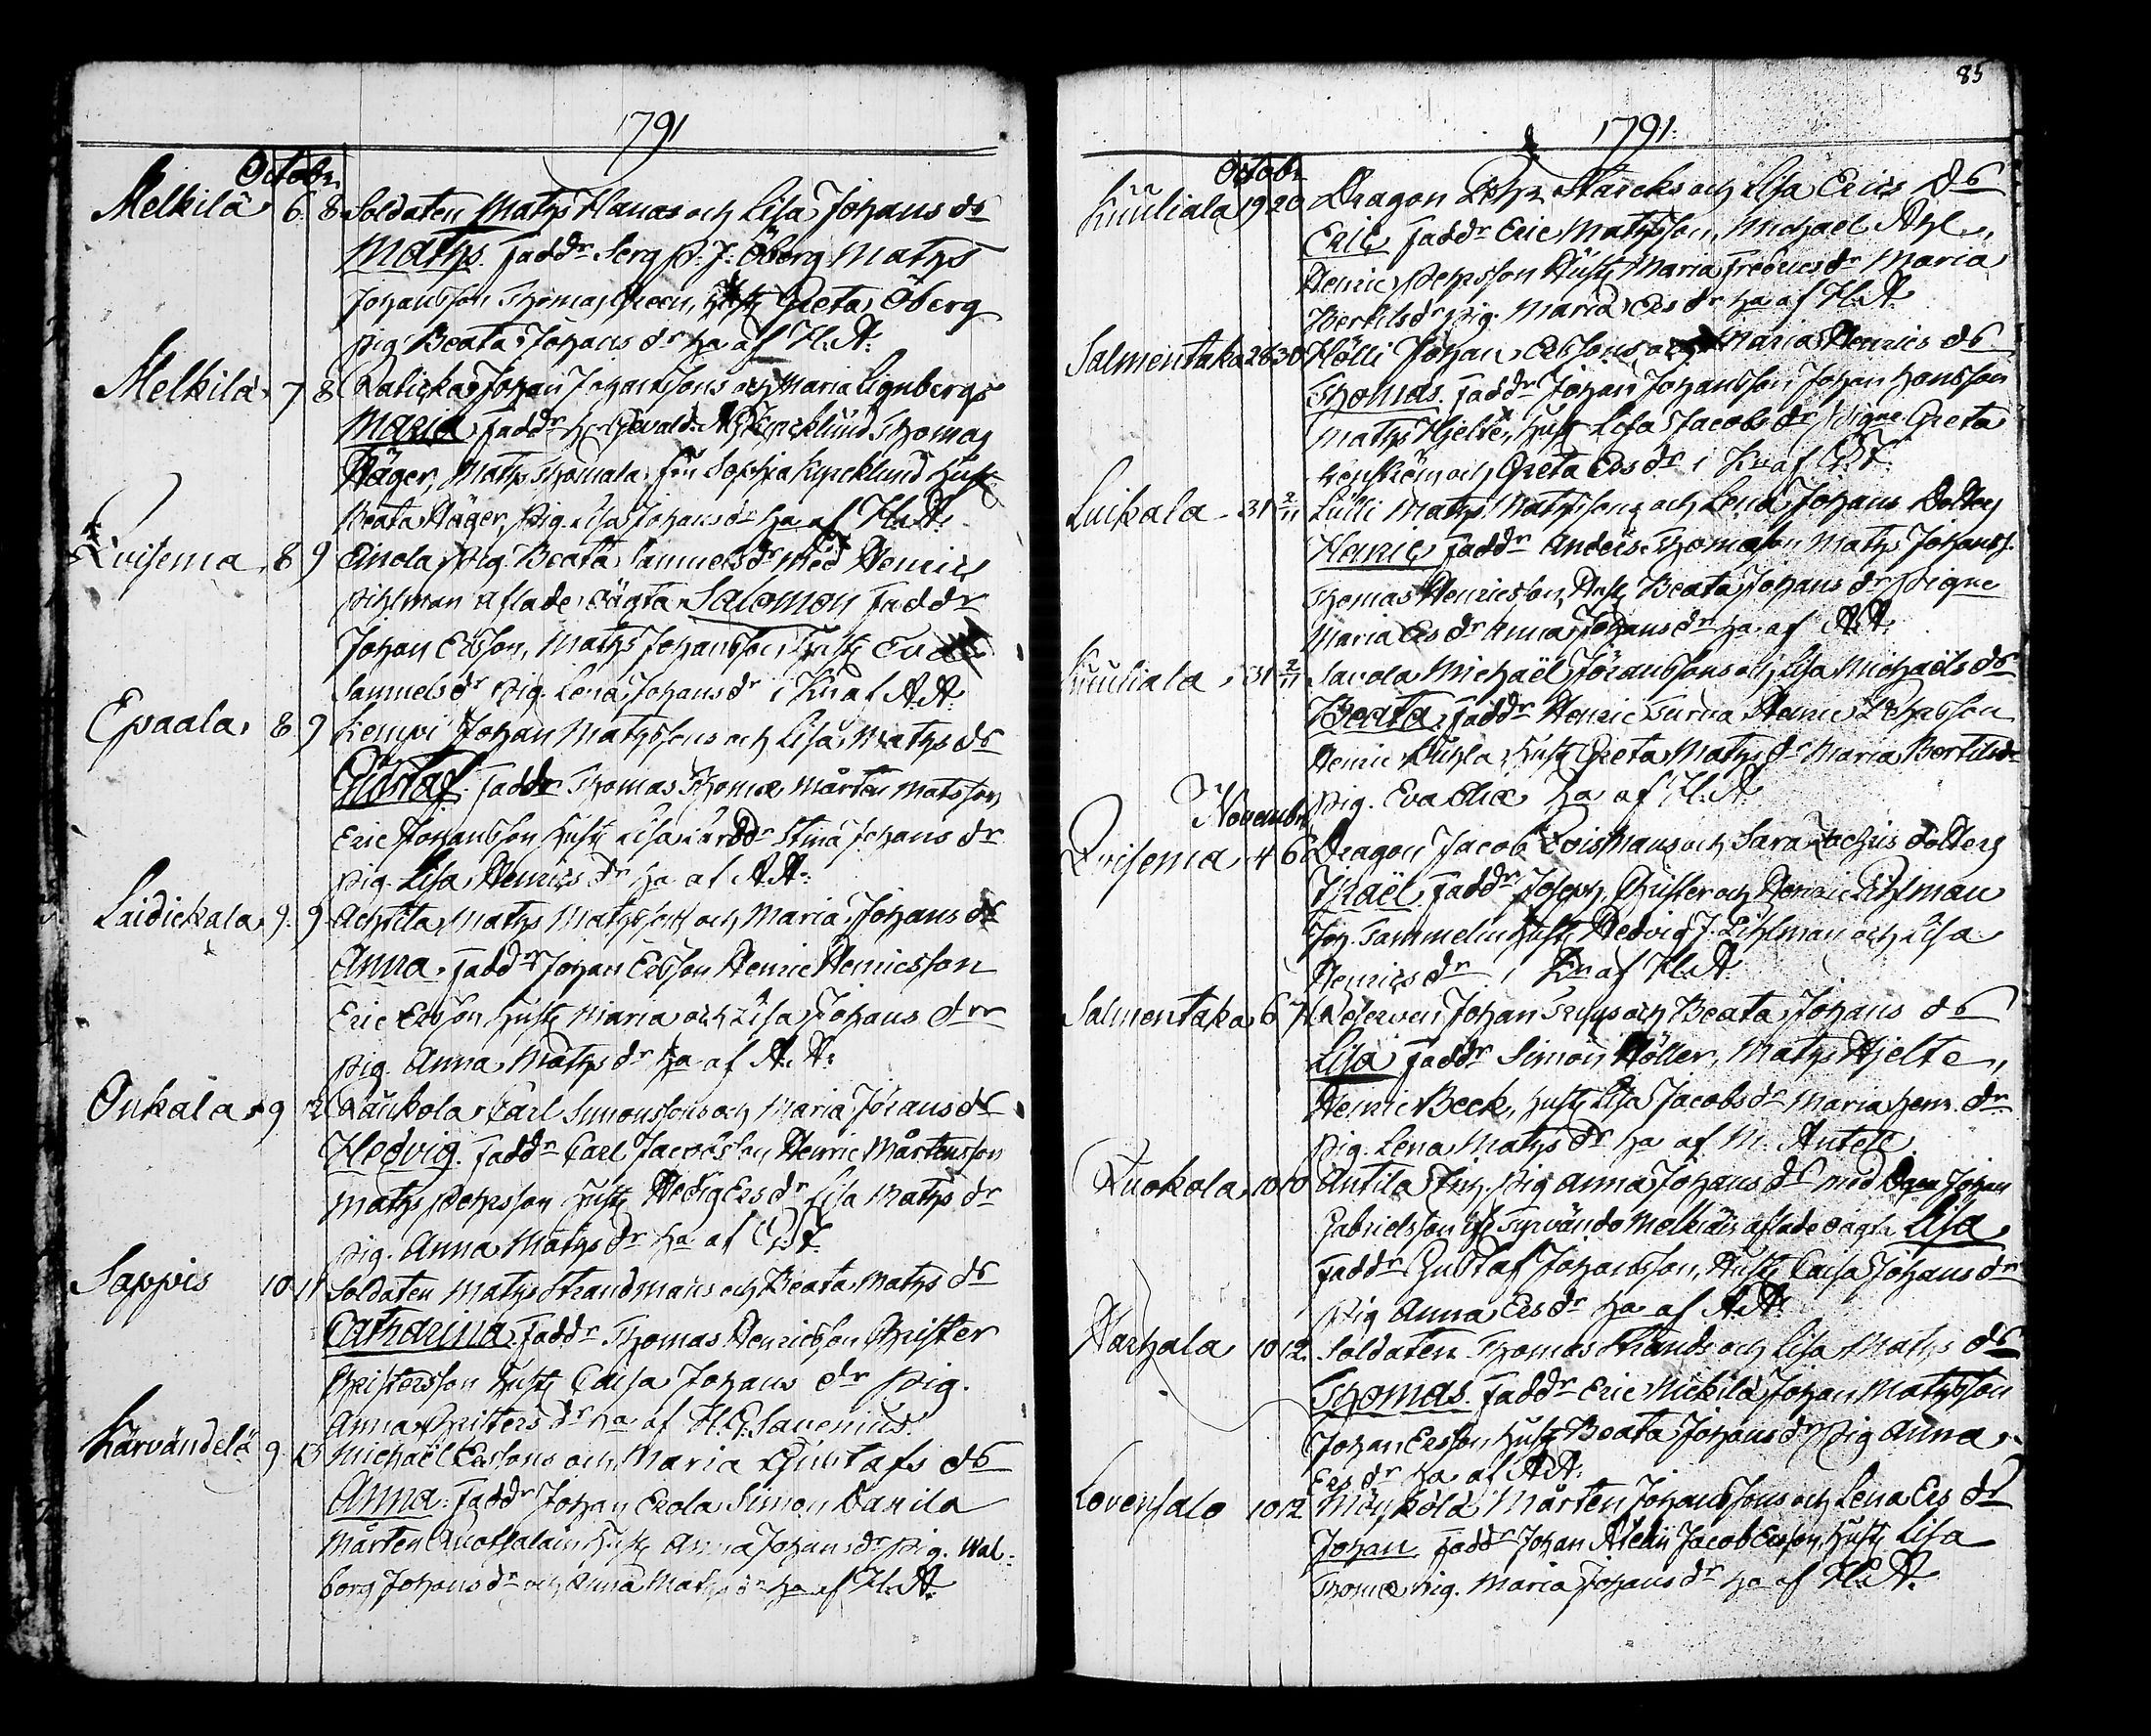 1791
Octobr
Melkilä 6. 8 Soldaten Maths Hanos och Lisa Johans ds
Maths. Faddr Serg P. J. Öberg Maths
Johansson Thomas Green, Hust Greta Öberg
pig Beata Johans dr ha af H. A:
Melkilä 7 8 Ratickas Johan Johanssons och Maria Lignbergs
Maria Faddr Hr Kyrcklund Thomas
Häger, Maths Thomala, fru Sophia Kyrcklund Hust
Beata Häger, pig. Lisa Johans dr ha af H. A:
Kvisema 8 9 Einola pig. Beata Samuelsdr med Henric
Pihlman aflade oägta Salomon Faddr
Johan Ersson, Maths Johansson Hust Eva
Samuelsdr pig. Lena Johansdr i Kn af A A:
Epaala 8 9 Lempi Johan Mathssons och Lisa Maths ds
Gustaf. Faddr Thomas Thomæ Mårten Matsson
Eric Johansson Hust Lisa Larsdr Stina Johans dr
pig. Lisa Henrics dr ha af A A:
Luidickala 9. 9 Achtila Maths Mathssons och Maria Johans ds
Anna. Faddr Johan Ersson Henric Henricsson
Eric Ersson Hust Maria och Lisa Johans drr
pig. Anna Maths dr ha af A. A:
Onkala 9 12 Raukola Carl Simonssons och Maria Jörans ds
Hedvig. Faddr Carl Jacobsson Henric Mårtensson
Maths Pehrsson Hust Hedvig Ers dr Lisa Maths dr
pig. Anna Maths dr ha af
Sappis 10 11 Soldaten Maths Strandmans och Beata Maths ds
Catharina. Faddr Thomas Henricsson Christer
Christersson Hust Caisa Johans dr pig.
Anna Christers dr ha af H. G. Savenius.
Kärvändelä 9. 13 Michaël Erssons och Maria Gustafs ds
Anna. Faddr Johan Erola Simon Danila
Mårten Ruotsalain Hust Anna Johans dr pig. Wal-
borg Johans dr och Anna Maths dr ha af H. A:
85
1791.
Octobr
Kuuliala 19 20 Dragon Pehr Starcks och Lisa Erics ds
Eric Faddr Eric Mathsson, Michael
Henric Pehrsson Hust Maria Fredricsdr Maria
Bertilsdr pig. Maria Ers dr ha af H. A:
Salmentaka 28 30 Hölli Johan Erssons och Maria Henrics ds
Thomas. Faddr Johan Johansson Johan Hansson
Maths Hjelte, Hust Lisa Jacobs dr pigne Greta
och Greta Ers dr i Kn af
Luikala 31 2/11 Lulli Maths Mathssons och Lena Johans Dotters
Henric Faddr Anders Thomasson Maths Johanss.
Thomas Henricsson, Hust Beata Johans dr pigne
Maria Ers dr Anna Johans dr ha af A A:
Kuuliala 31 2/11 Savola Michaël Jöranssons och Lisa Michaëls ds
Beata. Faddr Henric Turna Henric Pehrsson
Henric Hust Greta Maths dr Maria Bertilsdr
pig. Eva ha af H. A:
Novembr
Kvisema 4 6 Dragon Jacob Qvismans och Sara Zachris dotters
Israël. Faddr Joseph, Christer och Henric Pihlman
Joh. Sammelin Hust Hedvig J. Pihlman och Lisa
Henrics dr i Kn af H. A:
Salmentaka 6 7 Reserven Johan och Beata Johans ds
Lisa Faddr Simon Höller, Maths Hjelte,
Henric Beck, Hust Lisa Jacobs dr Maria Henr. dr
pig. Lena Maths dr ha af M. Antell
Ruokola 10 10 Antila Inh. pig Anna Johans ds med Johan
Gabrielsson ifr Tyrvändö aflade oägta Lisa
Faddr Gustaf Johansson, Hust Caisa Johans dr
pig Anna Ers dr ha af A A:
Harhala 10 12 Soldaten Thomas Strands och Lisa Maths ds
Thomas. Faddr Eric Nickilä Johan Mathsson
Johan Ersson Hust Beata Johans dr pig Anna
Ers dr ha af A A:
Lovensalo 10 12 Möyskölä Mårten Johanssons och Lena Ers ds
Johan Faddr Johan Jacob Ersson, Hust Lisa
Thomæ pig. Maria Johans dr ha af H. A: